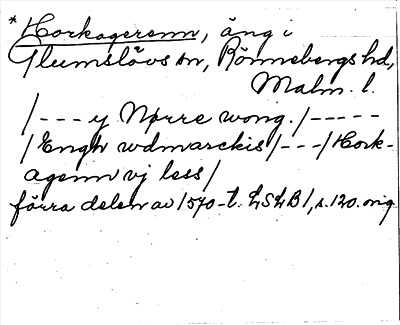 * Horkageren, äng i
Glumslövs sn, Rönnebergs hd,
Malm. l.
/ - - - y Nørre wong. / - - - - -
/ Engh wdmarckis / - - - / Hork-
agenn vj less /
förra delen av 1570-t. LSLB 1, s. 120. orig.